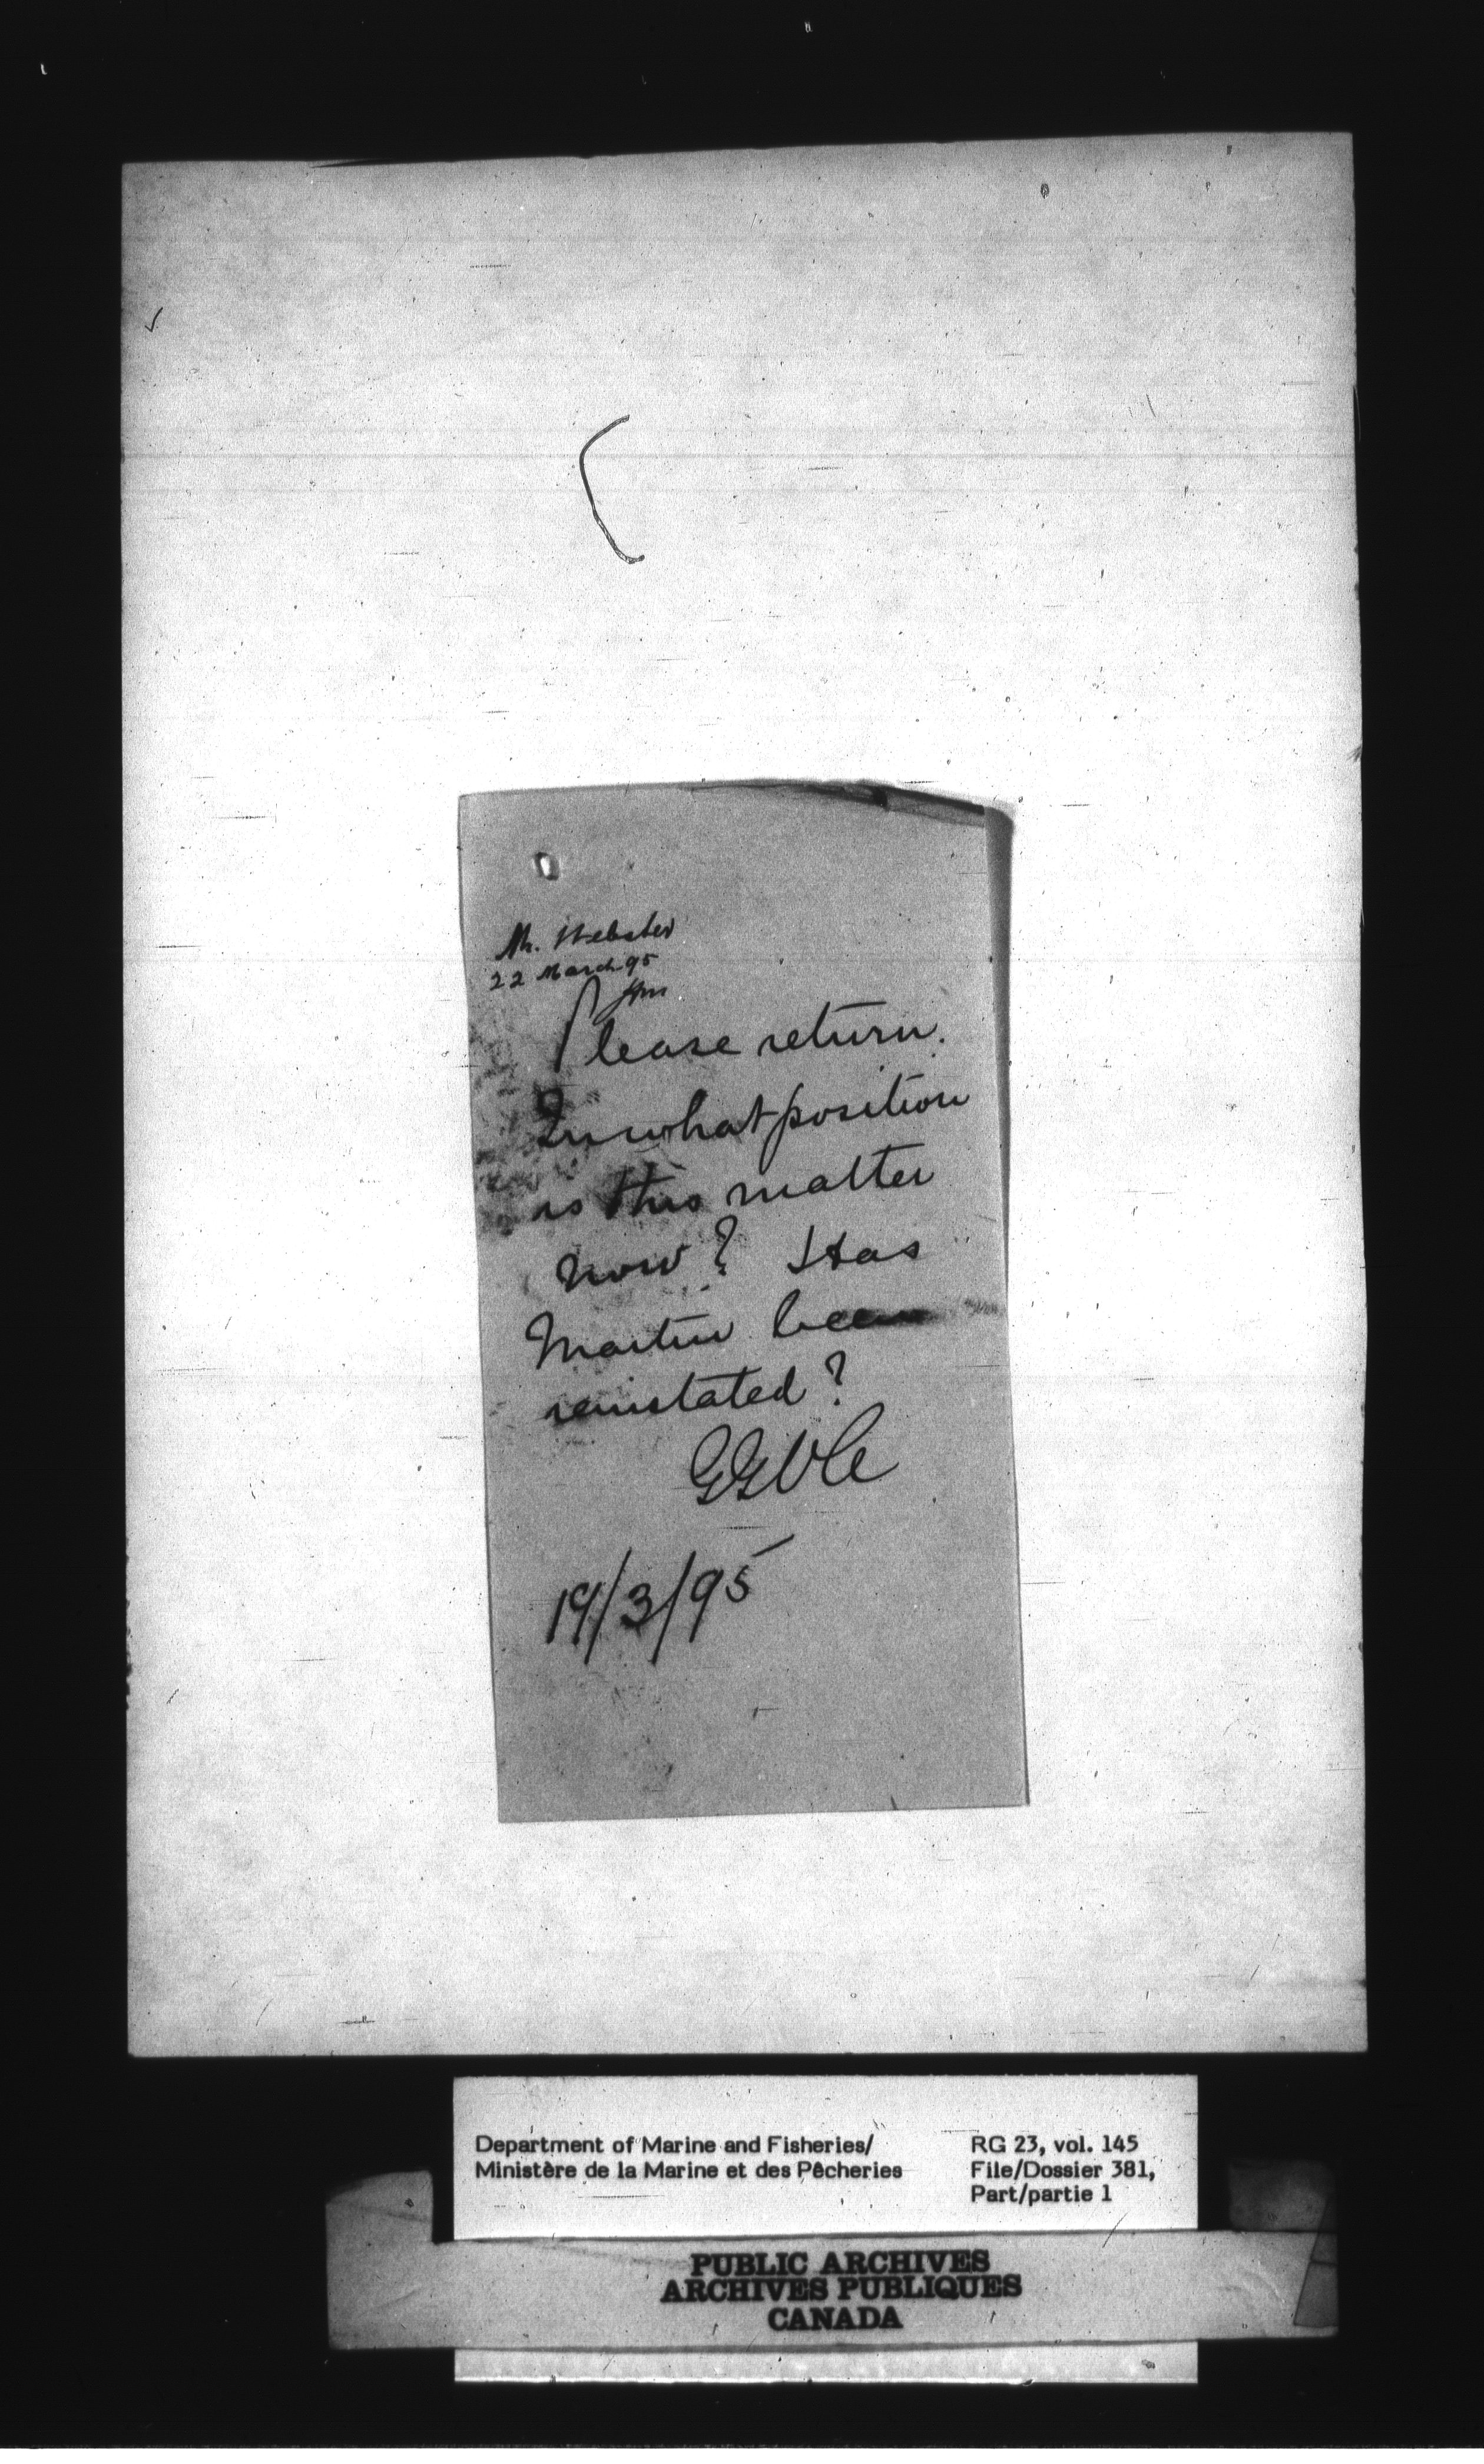 Mr. Webster
22 March 95
Please return.
In what position
is this matter
now? Has
Martin been
reinstated?
19/3/95
Department of Marine and Fisheries/
Ministère de la Marine et des Pêcheries
RG 23, vol. 145
File/Dossier 381,
Part/partie 1
PUBLIC ARCHIVES
ARCHIVES PUBLIQUES
CANADA